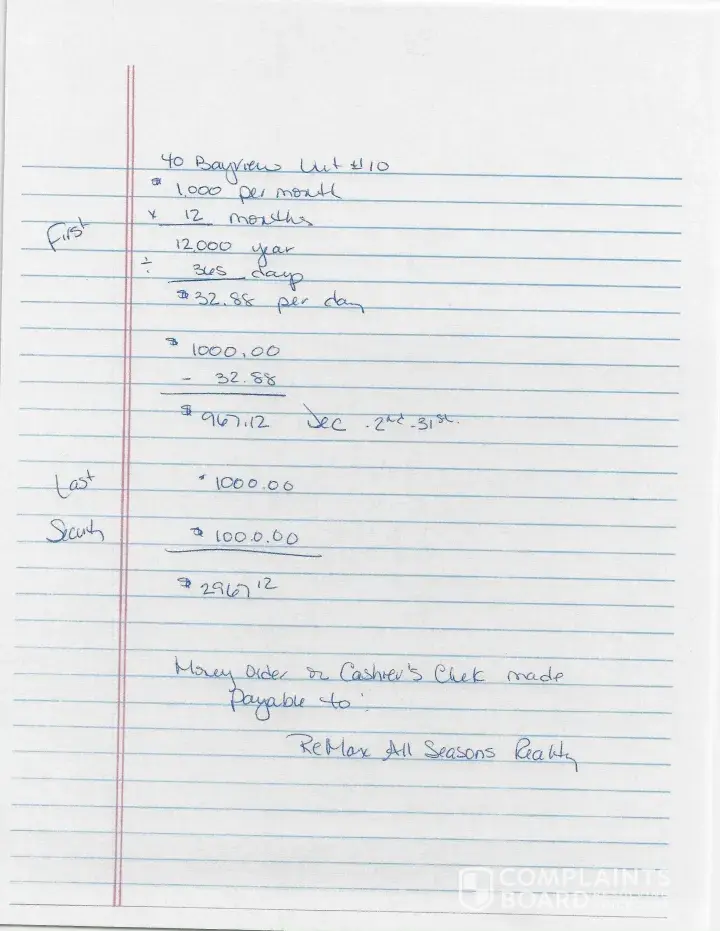 40 Bayview Unit #10
$ 1,000 per month
x 12 months
First
12,000 year
÷ 365 days
$32.88 per day
$ 1000.00
- 32.88
$ 967.12 Dec. 2nd-31st.
Last $ 1000.00
Security $ 1000.00
$ 2967 12
Money Order or Cashier's Chek made
payable to:
ReMax All Seasons Realty
COMPLAINTS
BOARD